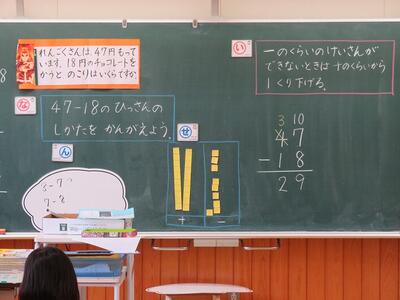 れんごくさんは、47円もって
います。18円のチョコレートを
かうと、のこりはいくらですか。
い
一のくらいのけいさんが
できないときは 十のくらいから
1くり下げる。
な
47-18のひっさんの
しかたを かんがえよう。
ん
せ
3 10
47
-18
29
3-7
7-8
十 一
8